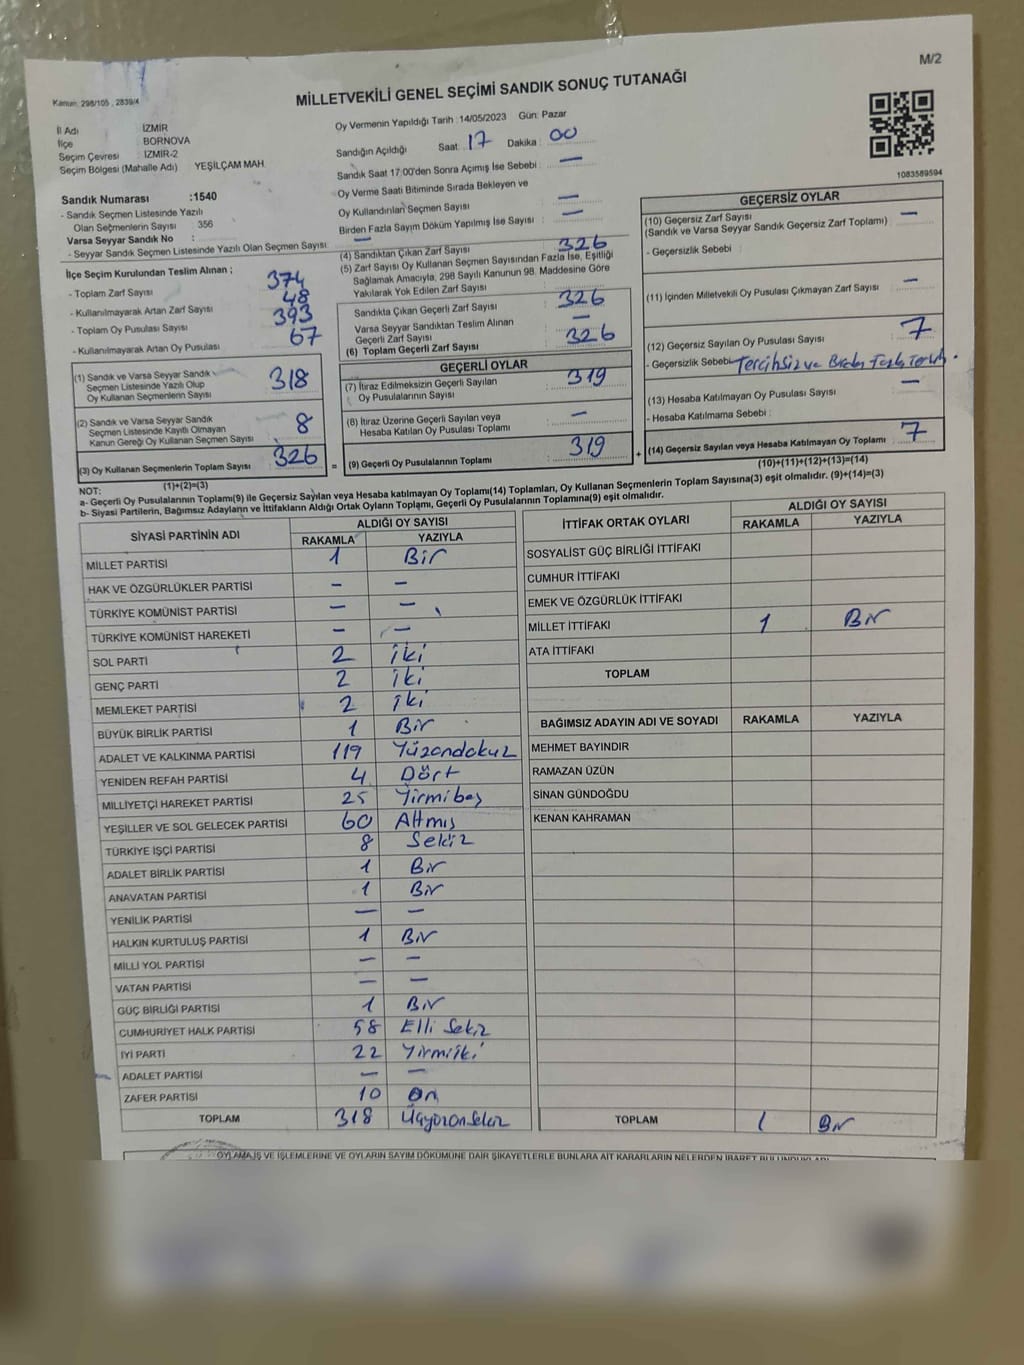 M/2
Kanun: 298/105 , 2839/4
MİLLETVEKİLİ GENEL SEÇİMİ SANDIK SONUÇ TUTANAĞI
İl Adı İZMİR
İlçe BORNOVA
Seçim Çevresi : İZMİR-2
Seçim Bölgesi (Mahalle Adı) YEŞİLÇAM MAH.
Sandık Numarası :1540
- Sandık Seçmen Listesinde Yazılı
Olan Seçmenlerin Sayısı : 356
Varsa Seyyar Sandık No :
- Seyyar Sandık Seçmen Listesinde Yazılı Olan Seçmen Sayısı : —
Oy Vermenin Yapıldığı Tarih :14/05/2023 Gün: Pazar
Sandığın Açıldığı Saat : 17 Dakika : 00
Sandık Saat 17:00'den Sonra Açımış İse Sebebi : —
Oy Verme Saati Bitiminde Sırada Bekleyen ve
Oy Kullandırılan Seçmen Sayısı : —
Birden Fazla Sayım Döküm Yapılmış İse Sayısı : —
1083589594
İlçe Seçim Kurulundan Teslim Alınan ;
- Toplam Zarf Sayısı : 374
- Kullanılmayarak Artan Zarf Sayısı : 48
- Toplam Oy Pusulası Sayısı : 393
- Kullanılmayarak Artan Oy Pusulası : 67
(1) Sandık ve Varsa Seyyar Sandık
Seçmen Listesinde Yazılı Olup
Oy Kullanan Seçmenlerin Sayısı : 318
(2) Sandık ve Varsa Seyyar Sandık
Seçmen Listesinde Kayıtlı Olmayan
Kanun Gereği Oy Kullanan Seçmen Sayısı : 8
(3) Oy Kullanan Seçmenlerin Toplam Sayısı : 326
(1)+(2)=(3)
(4) Sandıktan Çıkan Zarf Sayısı : 326
(5) Zarf Sayısı Oy Kullanan Seçmen Sayısından Fazla İse, Eşitliği
Sağlamak Amacıyla, 298 Sayılı Kanunun 98. Maddesine Göre
Yakılarak Yok Edilen Zarf Sayısı :
Sandıkta Çıkan Geçerli Zarf Sayısı : 326
Varsa Seyyar Sandıktan Teslim Alınan
Geçerli Zarf Sayısı : —
(6) Toplam Geçerli Zarf Sayısı : 326
GEÇERLİ OYLAR
(7) İtiraz Edilmeksizin Geçerli Sayılan
Oy Pusulasının Sayısı : 319
(8) İtiraz Üzerine Geçerli Sayılan veya
Hesaba Katılan Oy Pusulası Toplamı : —
= (9) Geçerli Oy Pusulalarının Toplamı : 319
GEÇERSİZ OYLAR
(10) Geçersiz Zarf Sayısı : —
(Sandık ve Varsa Seyyar Sandık Geçersiz Zarf Toplamı)
- Geçersizlik Sebebi :
(11) İçinden Milletvekili Oy Pusulası Çıkmayan Zarf Sayısı : —
(12) Geçersiz Sayılan Oy Pusulası Sayısı : 7
- Geçersizlik Sebebi : Tercihsiz ve Birden Fazla Tercih.
(13) Hesaba Katılmayan Oy Pusulası Sayısı : —
- Hesaba Katılmama Sebebi :
+ (14) Geçersiz Sayılan veya Hesaba Katılmayan Oy Toplamı : 7
(10)+(11)+(12)+(13)=(14)
NOT:
a- Geçerli Oy Pusulalarının Toplamı(9) ile Geçersiz Sayılan veya Hesaba katılmayan Oy Toplamı(14) Toplamları, Oy Kullanan Seçmenlerin Toplam Sayısına(3) eşit olmalıdır. (9)+(14)=(3)
b- Siyasi Partilerin, Bağımsız Adayların ve İttifakların Aldığı Ortak Oyların Toplamı, Geçerli Oy Pusulalarının Toplamına(9) eşit olmalıdır.
SİYASİ PARTİNİN ADI ALDIĞI OY SAYISI
RAKAMLA YAZIYLA
MİLLET PARTİSİ 1 Bir
HAK VE ÖZGÜRLÜKLER PARTİSİ — —
TÜRKİYE KOMÜNİST PARTİSİ — —
TÜRKİYE KOMÜNİST HAREKETİ — —
SOL PARTİ 2 iki
GENÇ PARTİ 2 iki
MEMLEKET PARTİSİ 2 iki
BÜYÜK BİRLİK PARTİSİ 1 Bir
ADALET VE KALKINMA PARTİSİ 119 Yüzondokuz
YENİDEN REFAH PARTİSİ 4 Dört
MİLLİYETÇİ HAREKET PARTİSİ 25 Yirmibeş
YEŞİLLER VE SOL GELECEK PARTİSİ 60 Altmış
TÜRKİYE İŞÇİ PARTİSİ 8 Sekiz
ADALET BİRLİK PARTİSİ 1 Bir
ANAVATAN PARTİSİ 1 Bir
YENİLİK PARTİSİ — —
HALKIN KURTULUŞ PARTİSİ 1 Bir
MİLLİ YOL PARTİSİ — —
VATAN PARTİSİ — —
GÜÇ BİRLİĞİ PARTİSİ 1 Bir
CUMHURİYET HALK PARTİSİ 58 Elli Sekiz
İYİ PARTİ 22 Yirmiiki
ADALET PARTİSİ — —
ZAFER PARTİSİ 10 On
TOPLAM 318 Üçyüzonsekiz
İTTİFAK ORTAK OYLARI ALDIĞI OY SAYISI
RAKAMLA YAZIYLA
SOSYALİST GÜÇ BİRLİĞİ İTTİFAKI
CUMHUR İTTİFAKI
EMEK VE ÖZGÜRLÜK İTTİFAKI
MİLLET İTTİFAKI 1 Bir
ATA İTTİFAKI
TOPLAM
BAĞIMSIZ ADAYIN ADI VE SOYADI RAKAMLA YAZIYLA
MEHMET BAYINDIR
RAMAZAN ÜZÜN
SİNAN GÜNDOĞDU
KENAN KAHRAMAN
TOPLAM 1 Bir